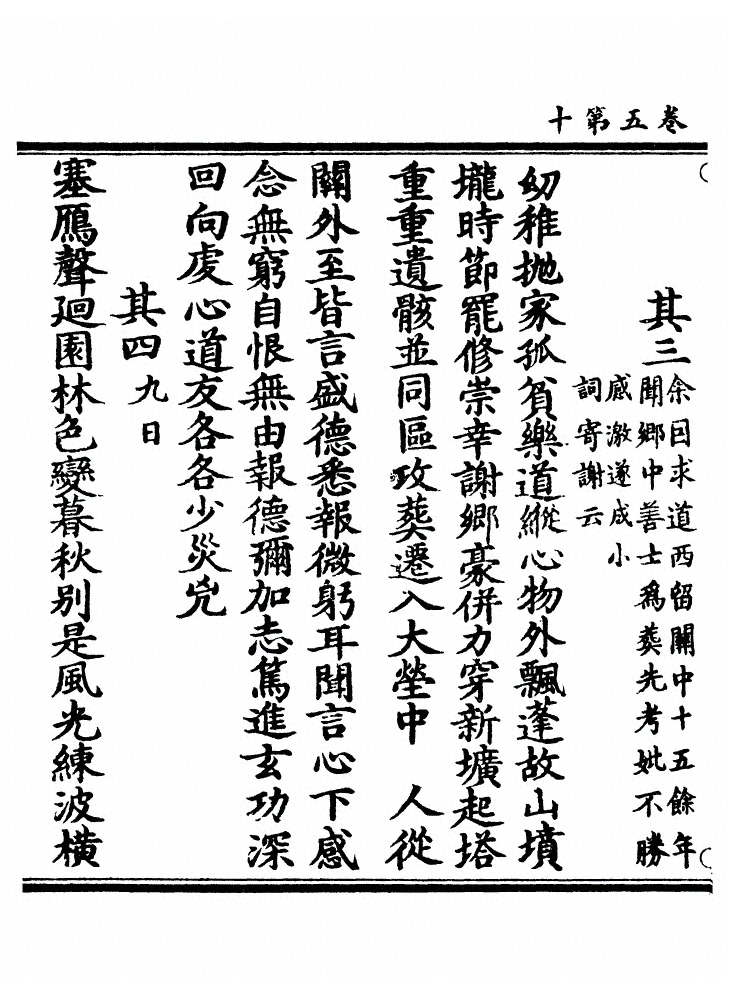 卷五第十
其三余因求道西留關中十五餘年
聞鄉中善士爲葬先考妣不勝
感激遂成小
詞寄謝云
幼稚抛家孤貧樂道縱心物外飄蓬故山墳
壠時節罷修崇幸謝鄉豪併力穿新壙起塔
重重遺骸並同區攻葬遷入大塋中　人從
關外至皆言盛德悉報微躬耳聞言心下感
念無窮自恨無由報德彌加志篤進玄功深
回向虔心道友各各少災兇
其四九日
塞鴈聲廻園林色變暮秋別是風光練波橫